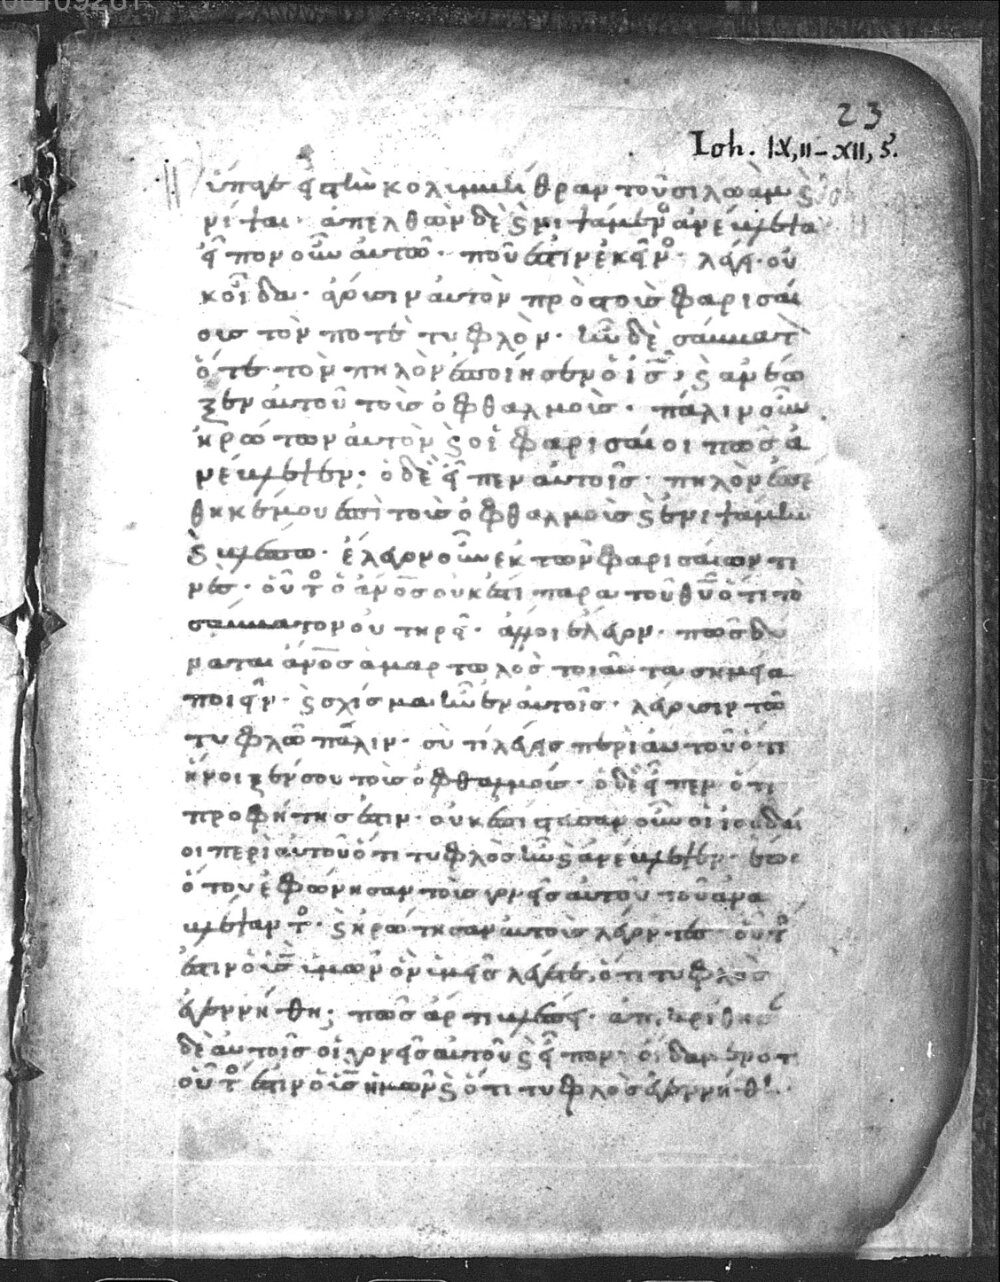 23
Ioh. IX, 11 – XII, 5.
ὕπαγε εἰς τὴν κολυμβήθραν τοῦ σιλωὰμ ϗ
νίψαι· ἀπελθὼν δὲ ϗ νιψάμενος ἀνέβλεψα
εἶπον οὖν αὐτῶ· ποῦ ἐστιν ἐκεῖνος· λέγει· οὐ
κ οἶδα· ἄγουσιν αὐτὸν πρὸς τοὺς φαρισαί
ους τὸν ποτὲ τυφλόν· ἦν δὲ σάββατον
ὅτε τὸν πηλὸν ἐποίησεν ὁ ι̅ς̅, ϗ ἀνέω
ξεν αὐτοῦ τοὺς ὀφθαλμούς· πάλιν οὖν
ἠρώτων αὐτὸν ϗ οἱ φαρισαῖοι πῶς ἀ
νέβλεψεν· ὁ δὲ εἶπεν αὐτοῖς· πηλὸν ἐπέ
θηκέ μου ἐπὶ τοὺς ὀφθαλμοὺς ϗ ἐνιψάμην
ϗ βλέπω· ἔλεγον οὖν ἐκ τῶν φαρισαίων τι
νές· οὗτος ὁ ἄν̅ο̅ς οὐκ ἔστι παρὰ τοῦ θ̅υ̅ ὅτι τὸ
σάββατον οὐ τηρεῖ· ἄλλοι ἔλεγον· πῶς δύ
ναται ἄν̅ο̅ς ἁμαρτωλὸς τοιαῦτα σημεῖα
ποιεῖν· ϗ σχίσμα ἦν ἐν αὐτοῖς· λέγουσιν τῶ
τυφλῶ πάλιν· σὺ τί λέγεις περὶ αὐτοῦ ὅτι
ἤνοιξέν σου τοὺς ὀφθαλμούς· ὁ δὲ εἶπεν ὅτι
προφήτης ἐστίν· οὐκ ἐπίστευσαν οὖν οἱ ἰουδαῖ
οι περὶ αὐτοῦ ὅτι τυφλὸς ἦν ϗ ἀνέβλεψεν· ἕως
ὅτου ἐφώνησαν τοὺς γονεῖς αὐτοῦ τοῦ ἀνα
βλέψαντος· ϗ ἠρώτησαν αὐτοὺς λέγοντες· οὗτος
ἐστιν ὁ υ̅ς̅ ὑμῶν ὃν ὑμεῖς λέγετε, ὅτι τυφλὸς
ἐγεννήθη; πῶς ἄρτι βλέπει· ἀπεκρίθησαν
δὲ αὐτοῖς οἱ γονεῖς αὐτοῦ ϗ εἶπον· οἴδαμεν ὅτι
οὗτος ἐστιν ὁ υ̅ς̅ ἡμῶν ϗ ὅτι τυφλὸς ἐγεννήθη·